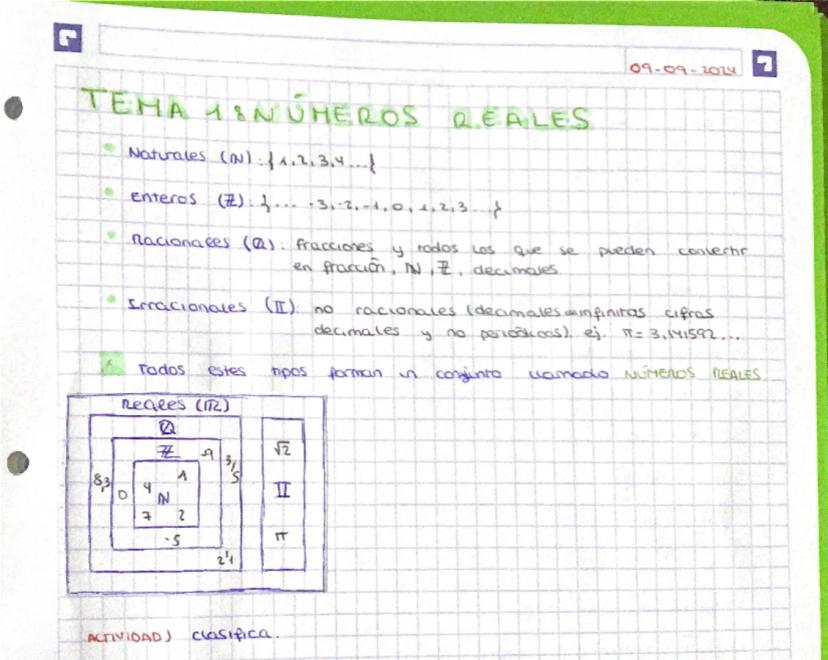 09-09-2024
TEMA 1: NÚMEROS REALES
Naturales (ℕ): {1, 2, 3, 4...}
Enteros (ℤ): {... -3, -2, -1, 0, 1, 2, 3...}
Racionales (ℚ): fracciones y todos los que se pueden convertir
en fracción, ℕ, ℤ, decimales.
Irracionales (𝕀): no racionales (decimales infinitas cifras
decimales y no periódicos). ej. π = 3,141592...
Todos estes tipos forman un conjunto llamado NÚMEROS REALES
Reales (ℝ)
ℚ
ℤ -9 3/5 √2
8,3 0 4 1 ℕ 𝕀
7 2
-5 π
2'1
ACTIVIDAD) clasifica.